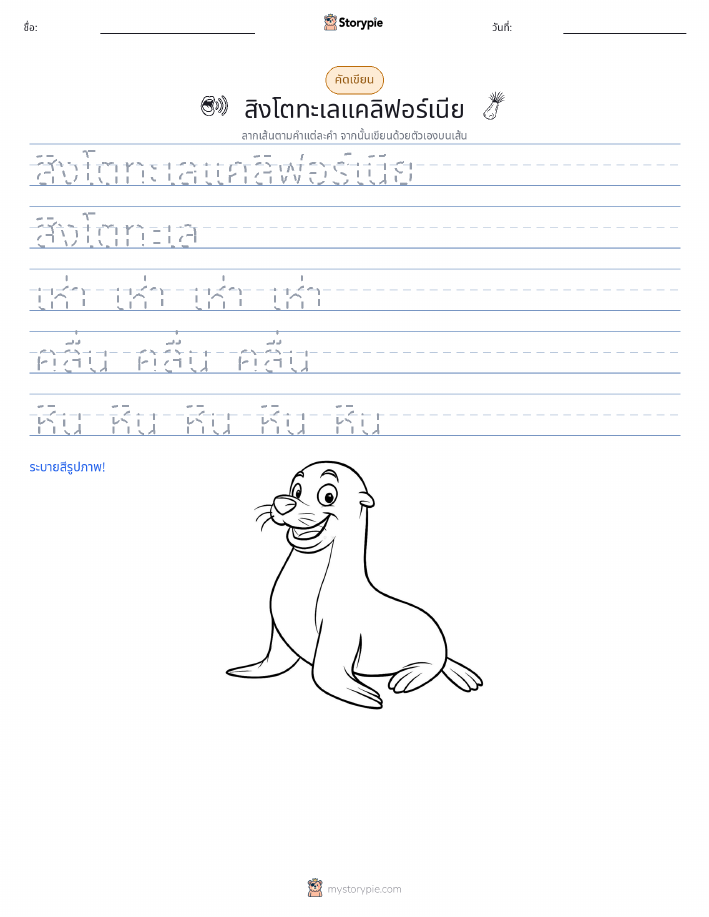 ชื่อ:
Storypie
วันที่:
คัดเขียน
สิงโตทะเลแคลิฟอร์เนีย
ลากเส้นตามคำแต่ละคำ จากนั้นเขียนด้วยตัวเองบนเส้น
สิงโตทะเลแคลิฟอร์เนีย
สิงโตทะเล
เห่า เห่า เห่า เห่า
คลื่น คลื่น คลื่น
หิน หิน หิน หิน หิน
ระบายสีรูปภาพ!
mystorypie.com